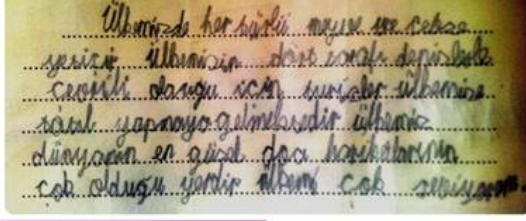 Ülkemizde her türlü meyve ve sebze
yetişir ülkemizin dört tarafı denizlerle
çevrili olduğu için turistler ülkemize
tatil yapmaya gelmektedir ülkemiz
dünyanın en güzel doğa harikalarının
çok olduğu yerdir ülkemi çok seviyorum